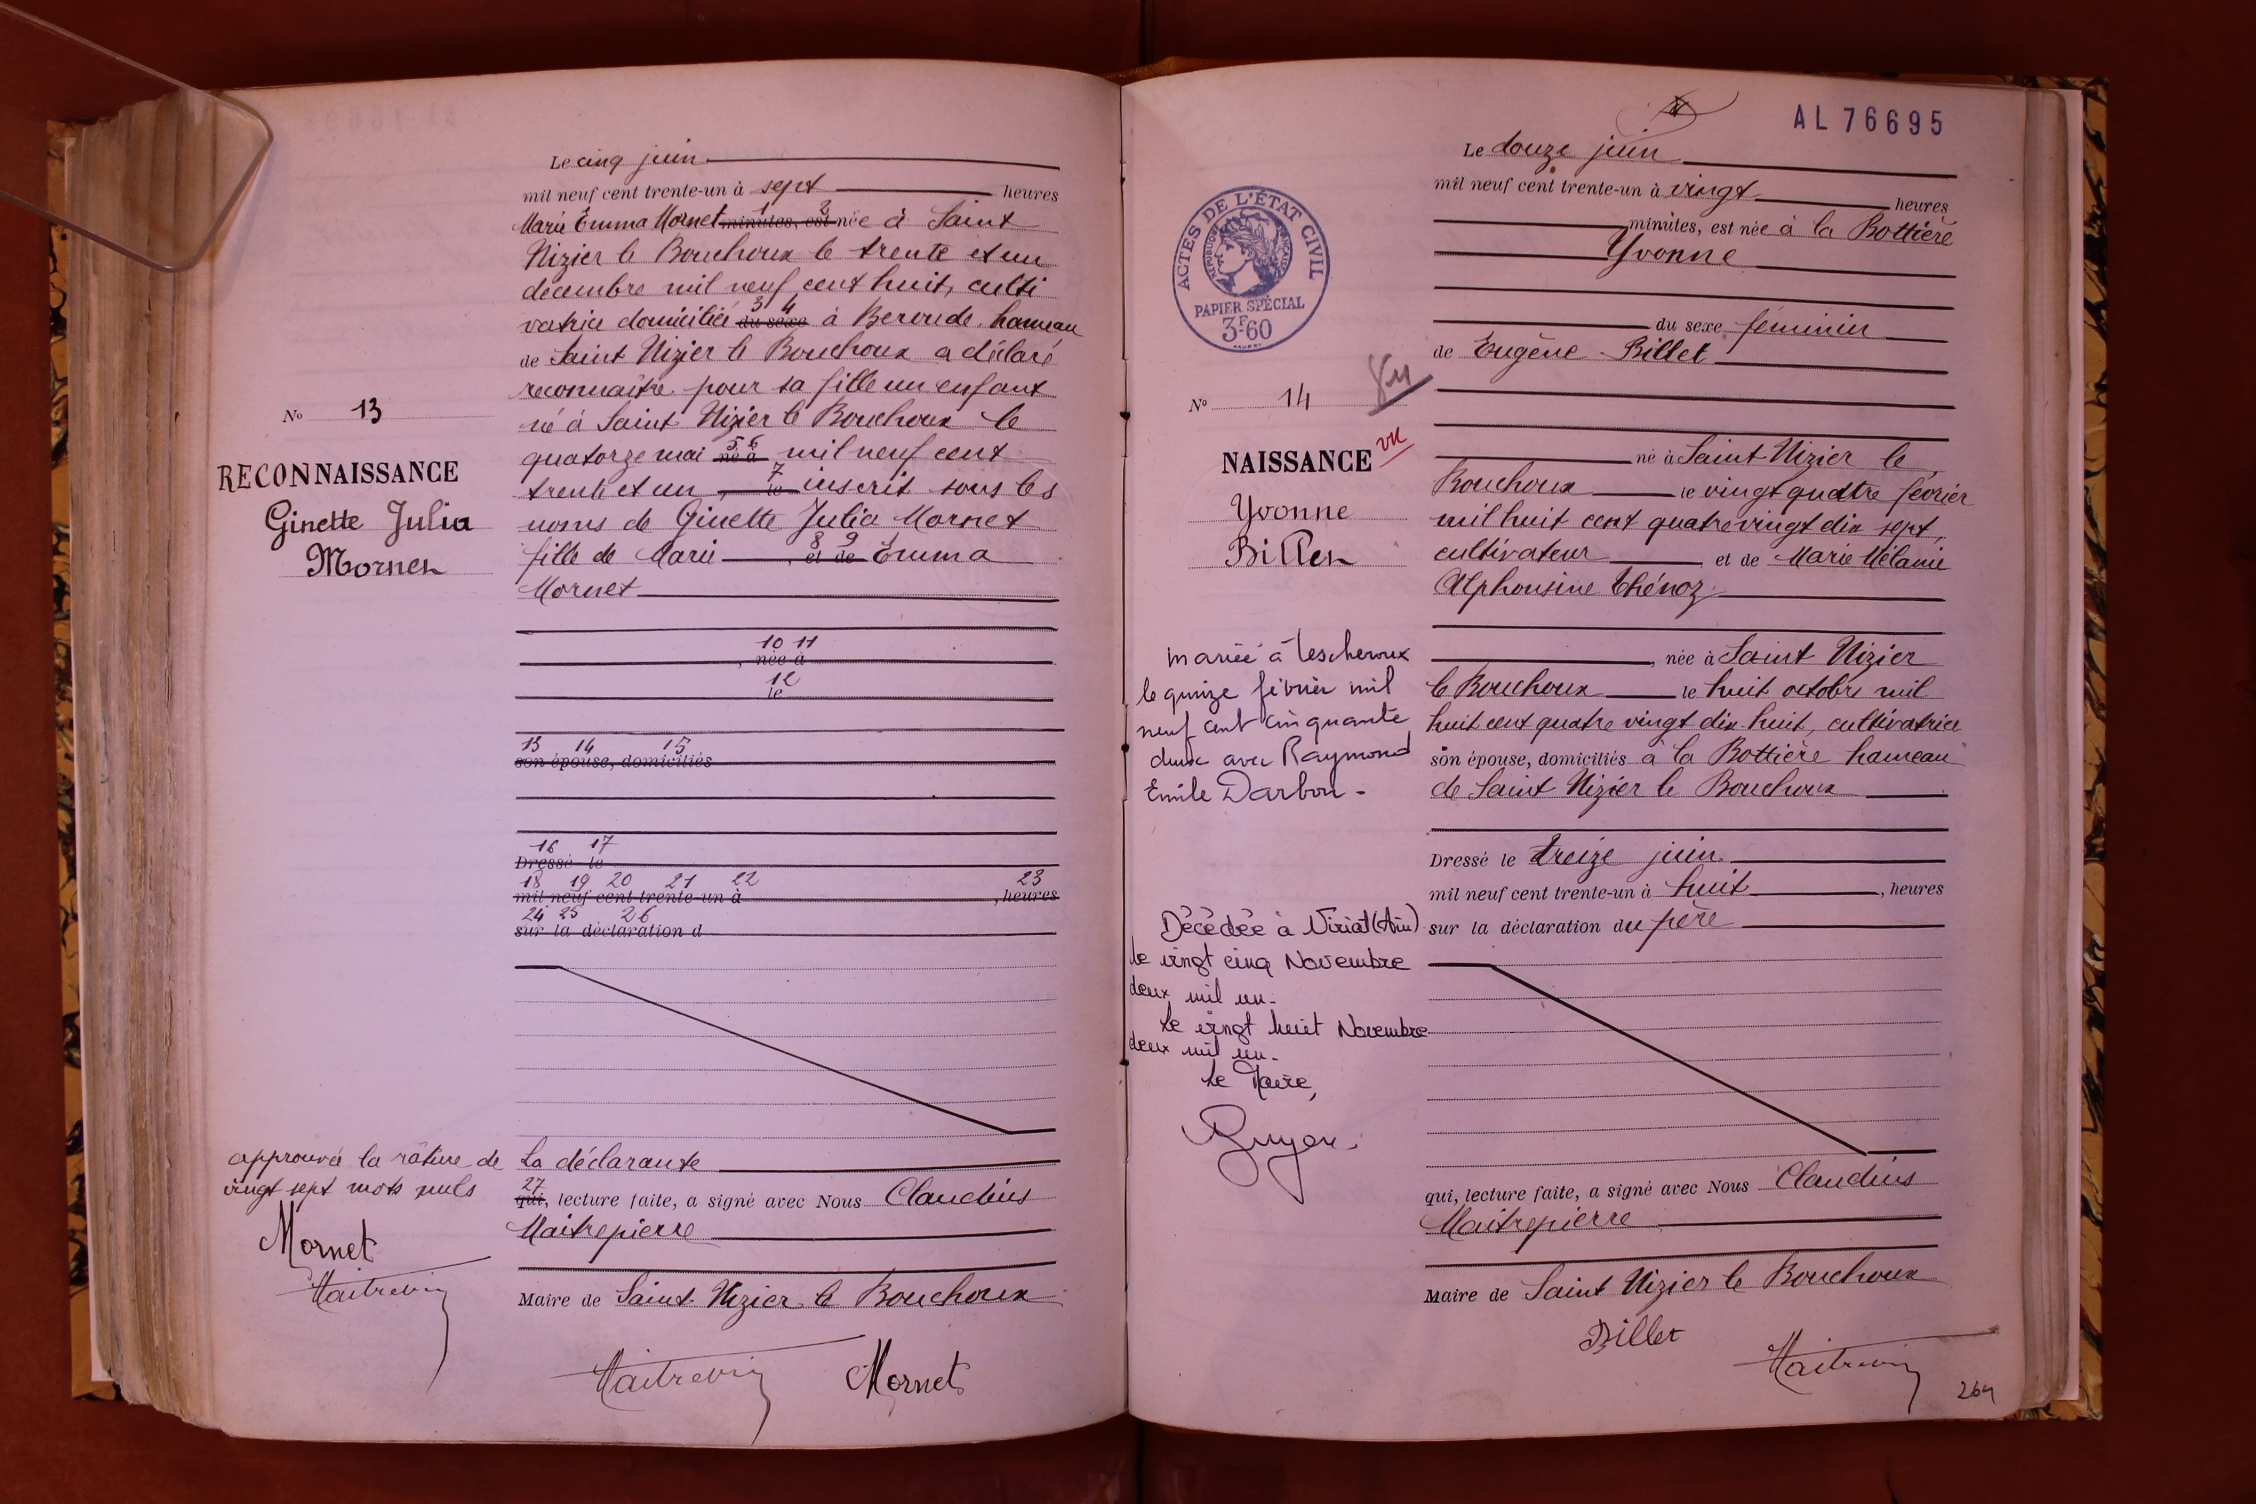 Le cinq juin
mil neuf cent trente-un à sept heures
Marie Emma Mornet minutes, est née à Saint
1 2
Nizier le Bouchoux le trente et un
décembre mil neuf cent huit, culti
vatrice domiciliée du sexe à Beroude, hameau
3 4
de Saint Nizier le Bouchoux a déclaré
reconnaître pour sa fille un enfant
né à Saint Nizier le Bouchoux le
quatorze mai né à mil neuf cent
5 6
trente et un, le inscrit sous les
7
noms de Ginette Julia Mornet
fille de Marie, et de Emma
8 9
Mornet
10 11
, née à
12
le
13 14 15
son épouse, domiciliés
16 17
Dressé le
18 19 20 21 22 23
mil neuf cent trente-un à , heures
24 25 26
sur la déclaration d
La déclarante
27
qui, lecture faite, a signé avec Nous Claudius
Maitrepierre
Maire de Saint Nizier le Bouchoux
Mornet
No 13
RECONNAISSANCE
Ginette Julia
Mornet
approuvé la rature de
vingt sept mots nuls
Mornet
AL 76695
Le douze juin
mil neuf cent trente-un à vingt heures
minutes, est née à la Bottière
Yvonne
du sexe féminin
de Eugène Billet
né à Saint Nizier le
Bouchoux le vingt quatre février
mil huit cent quatre vingt dix sept,
cultivateur et de Marie Mélanie
Alphonsine Thénoz
, née à Saint Nizier
le Bouchoux le huit octobre mil
huit cent quatre vingt dix huit, cultivatrice
son épouse, domiciliés à la Bottière hameau
de Saint Nizier le Bouchoux
Dressé le treize juin
mil neuf cent trente-un à huit , heures
sur la déclaration du père
qui, lecture faite, a signé avec Nous Claudius
Maitrepierre
Maire de Saint Nizier le Bouchoux
Billet
264
ACTES DE L'ÉTAT CIVIL
RÉPUBLIQUE FRANÇAISE
PAPIER SPÉCIAL
3F.60
No 14
NAISSANCE vu
Yvonne
Billet
mariée à Lescheroux
le quinze février mil
neuf cent cinquante
deux avec Raymond
Emile Darbon -
Décédée à Viriat (Ain)
le vingt cinq Novembre
deux mil un -
Le vingt huit Novembre
deux mil un -
Le Maire,